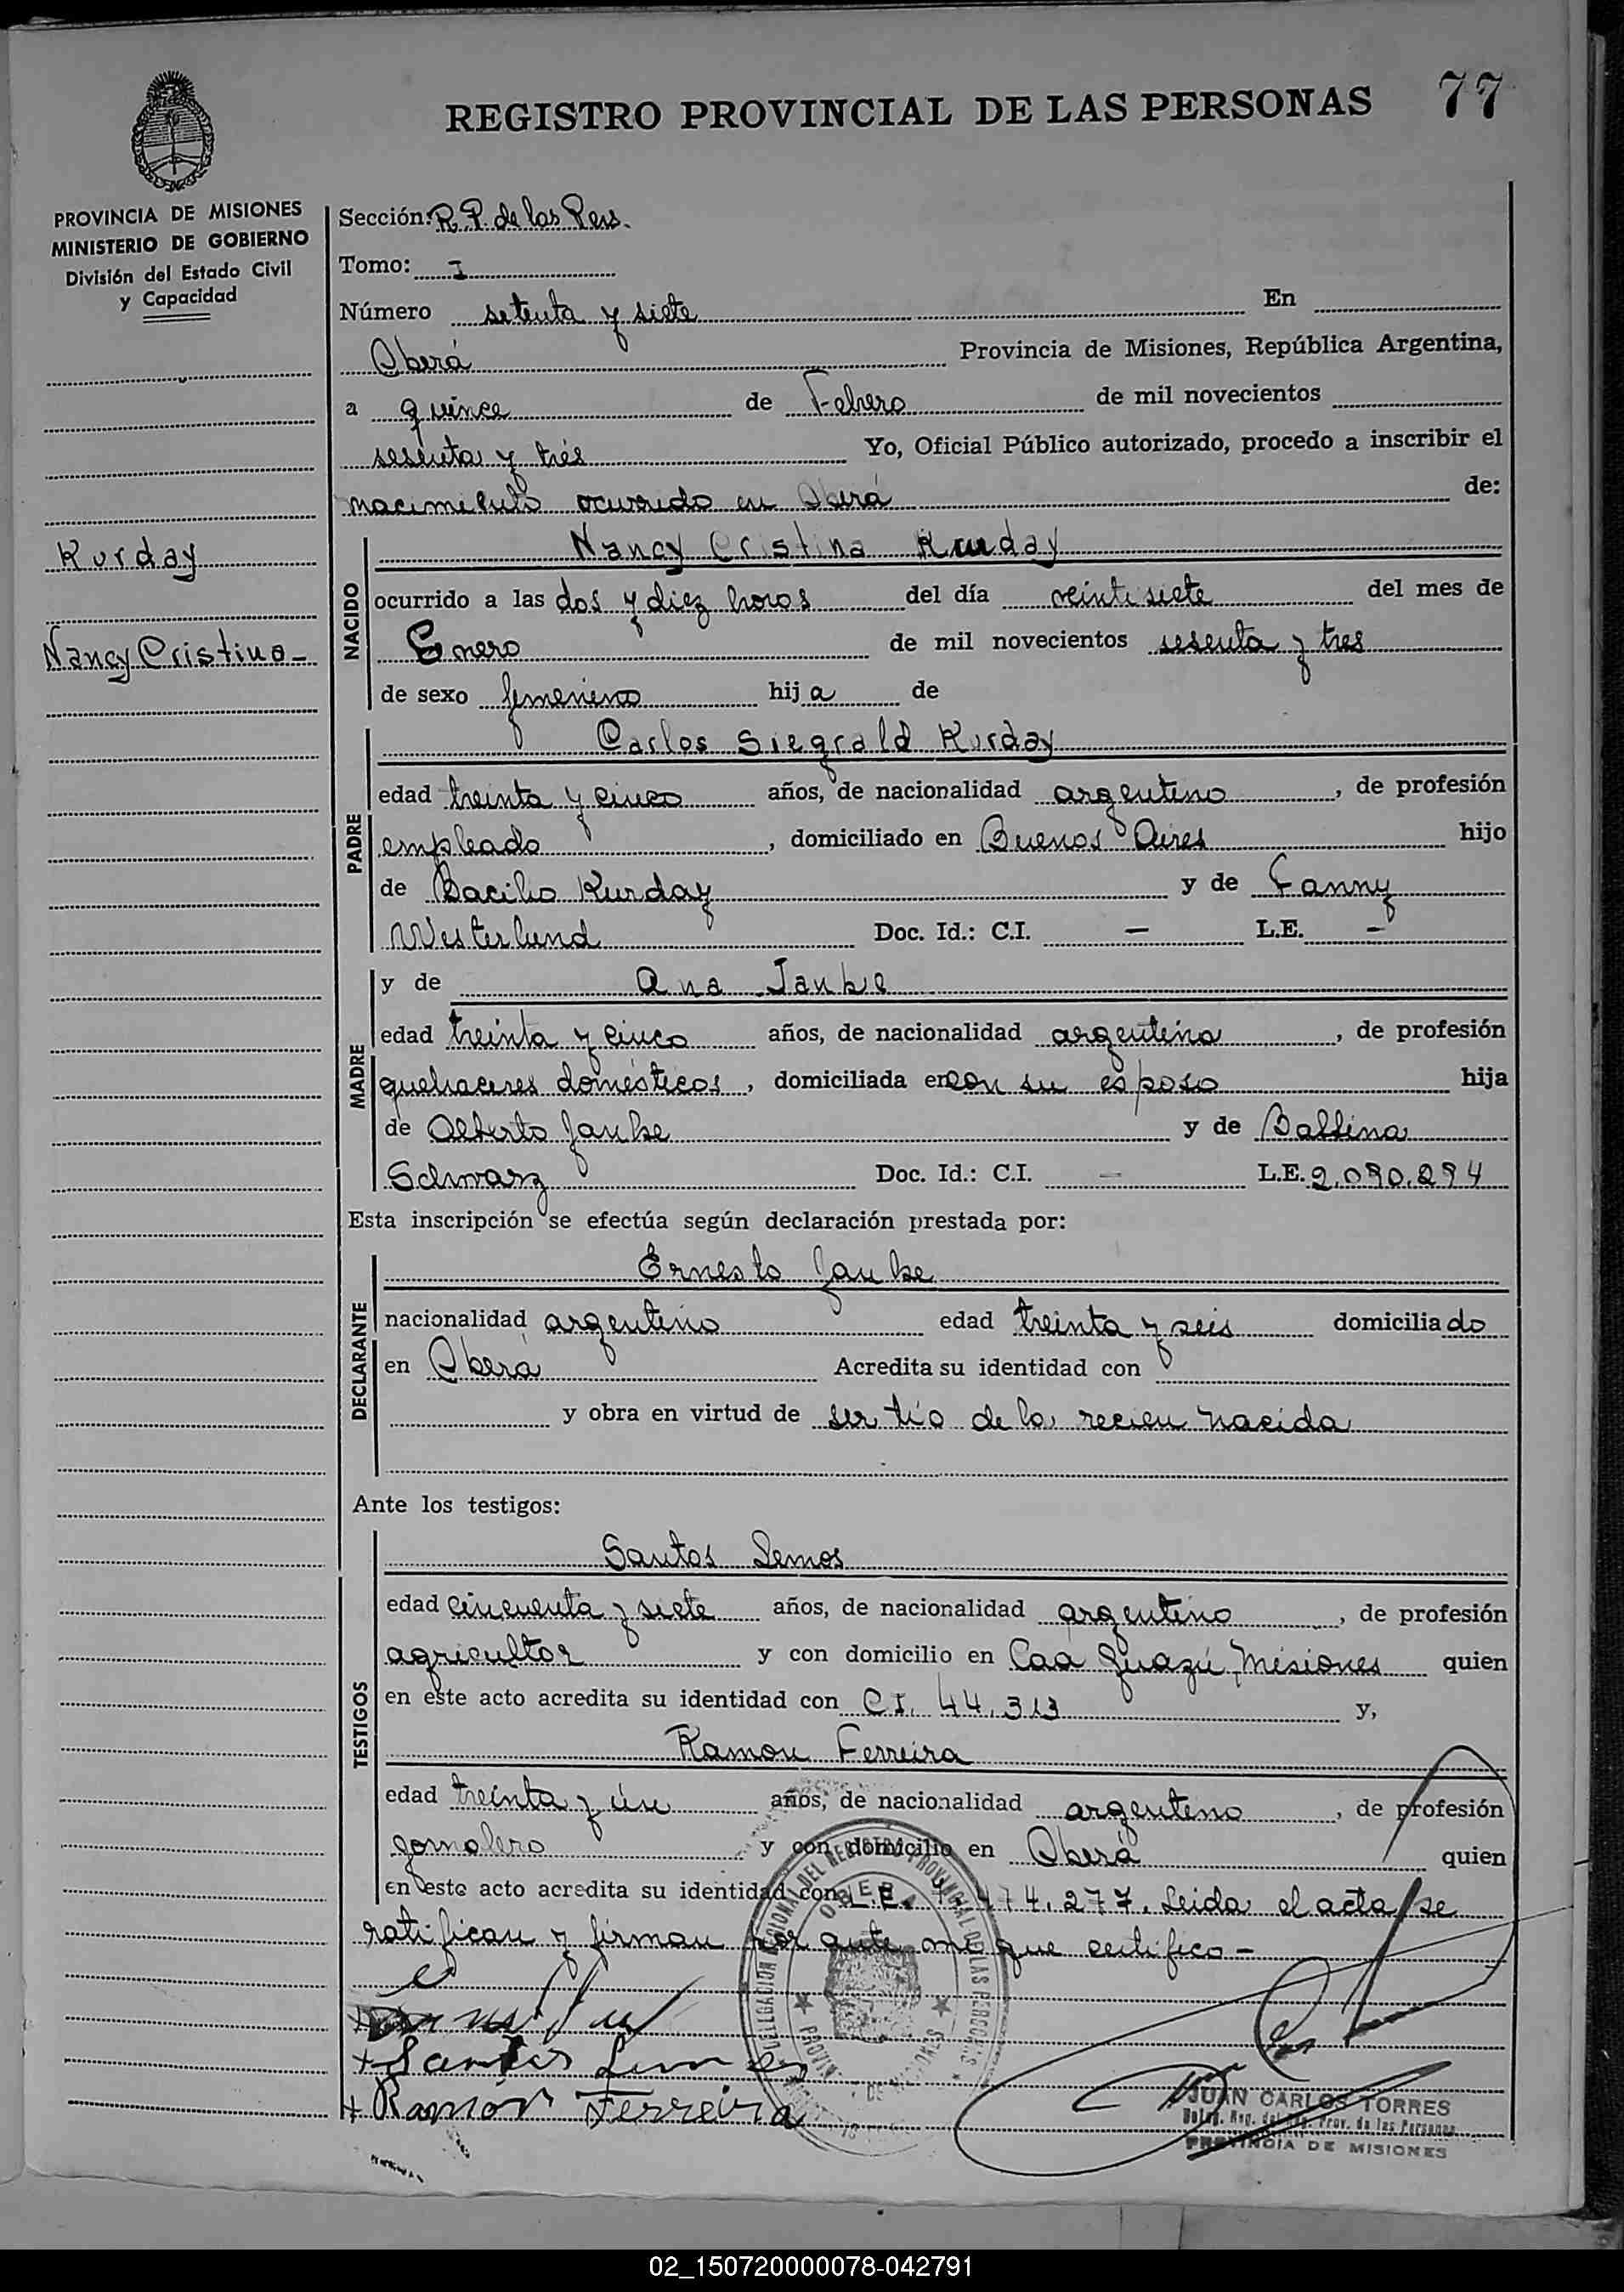 REGISTRO PROVINCIAL DE LAS PERSONAS 77
PROVINCIA DE MISIONES
MINISTERIO DE GOBIERNO
División del Estado Civil
y Capacidad
Kurday
Nancy Cristina-
Sección: R. P. de las Pers.
Tomo: I
Número setenta y siete En
Oberá Provincia de Misiones, República Argentina,
a quince de Febrero de mil novecientos
sesenta y trés Yo, Oficial Público autorizado, procedo a inscribir el
nacimiento ocurrido en Oberá de:
NACIDO
Nancy Cristina Kurday
ocurrido a las dos y diez horas del día veintisiete del mes de
Enero de mil novecientos sesenta y tres
de sexo femenino hija de
PADRE
Carlos Siegrald Kurday
edad treinta y cinco años, de nacionalidad argentino, de profesión
empleado, domiciliado en Buenos Aires hijo
de Bacilio Kurday y de Fanny
Westerlund Doc. Id.: C.I. - L.E. -
MADRE
y de Ana Janke
edad treinta y cinco años, de nacionalidad argentina, de profesión
quehaceres domésticos, domiciliada en con su esposo hija
de Alberto Janke y de Balbina
Schwarz Doc. Id.: C.I. - L.E. 2.090.294
Esta inscripción se efectúa según declaración prestada por:
DECLARANTE
Ernesto Janke
nacionalidad argentino edad treinta y seis domiciliado
en Oberá Acredita su identidad con
y obra en virtud de ser tío de la recien nacida
Ante los testigos:
TESTIGOS
Santos Lemos
edad cincuenta y siete años, de nacionalidad argentino, de profesión
agricultor y con domicilio en Caa Guazú, Misiones quien
en este acto acredita su identidad con C.I. 44.313 y,
Ramon Ferreira
edad treinta y ún años, de nacionalidad argentino, de profesión
jornalero y con domicilio en Oberá quien
en este acto acredita su identidad con L.E. 7.474.277. Leida el acta se
ratifican y firman por ante mi que certifico-
+ Santos Lemos
+ Ramón Ferreira
DELEGACION REGIONAL DEL REGISTRO PROVINCIAL DE LAS PERSONAS
OBERA
JUAN CARLOS TORRES
Deleg. Reg. del Reg. Prov. de las Personas
PROVINCIA DE MISIONES
02_150720000078-042791